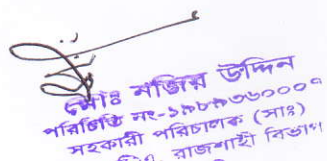 মোঃ মজিম উদ্দিন
পরিচিতি নং-১৯৮৯৩৬০০০৭
সহকারী পরিচালক (সাঃ)
রাজশাহী বিভাগ